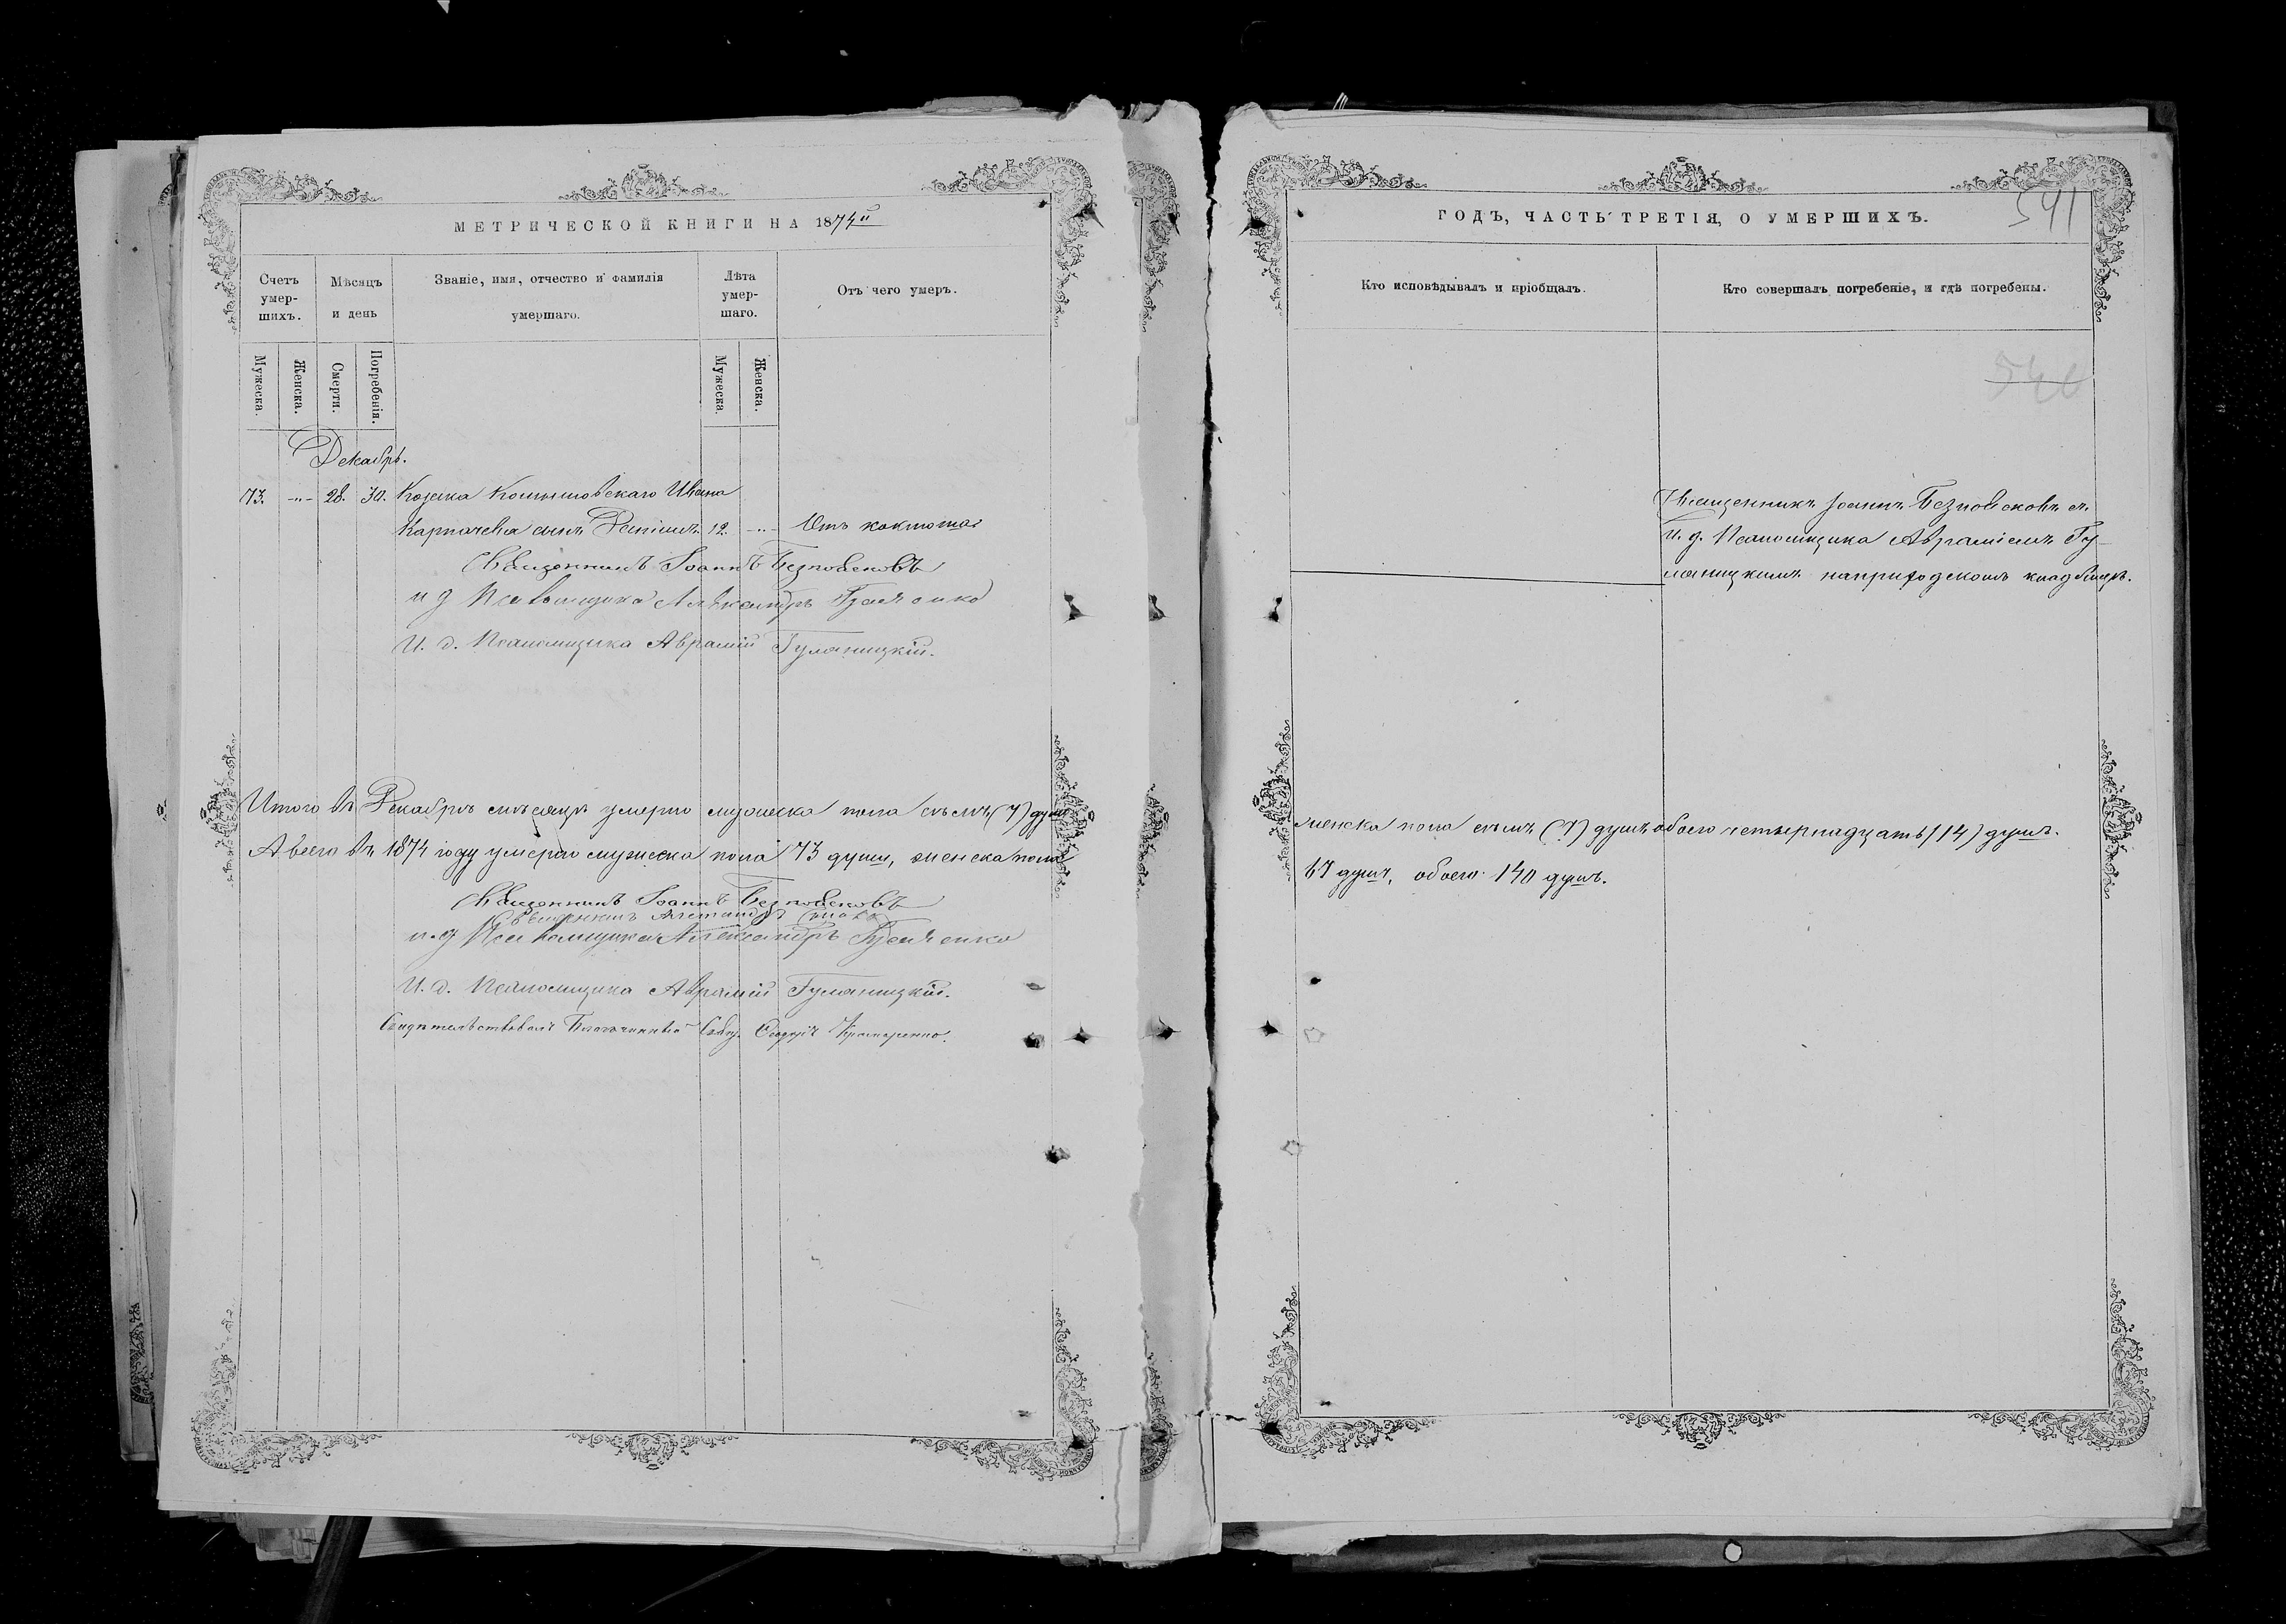 МЕТРИЧЕСКОЙ КНИГИ НА 1874й
Счетъ умер-шихъ.
Мѣсяцъ и день
Званіе, имя, отчество и фамилія умершаго.
Лѣта умер-шаго.
Отъ чего умеръ.
Мужеска.
Женска.
Смерти.
Погребенія.
Мужеска.
Женска.
Декабрь.
73. -"- 28. 30. Козака Ивана
сынъ 12. -"- Отъ
Священникъ Іоаннъ Безпоясковъ
и д Псаломщика Александръ
И. д. Псаломщика Аврамій Гуляницкій.
Итого въ Декабрѣ мѣсяцѣ умерло мужеска пола семь (7) душъ
А всего въ 1874 году умерло мужеска пола 73 души, женска пола
Священникъ Іоаннъ Безпоясковъ
и. д Псаломщика Александръ
И. д. Псаломщика Аврамій Гуляницкій.
Свидѣтельствовалъ Благочинный
ГОДЪ, ЧАСТЬ ТРЕТІЯ, О УМЕРШИХЪ.
541
Кто исповѣдывалъ и пріобщалъ.
Кто совершалъ погребеніе, и гдѣ погребены.
Священникъ Іоаннъ Безпоясковъ съ
И. д. Псаломщика Авраміемъ Гу-
ляницкимъ на приходскомъ кладбищѣ.
женска пола семь (7) душъ обоего четырнадцать (14) душъ.
67 душъ, обоего 140 душъ.